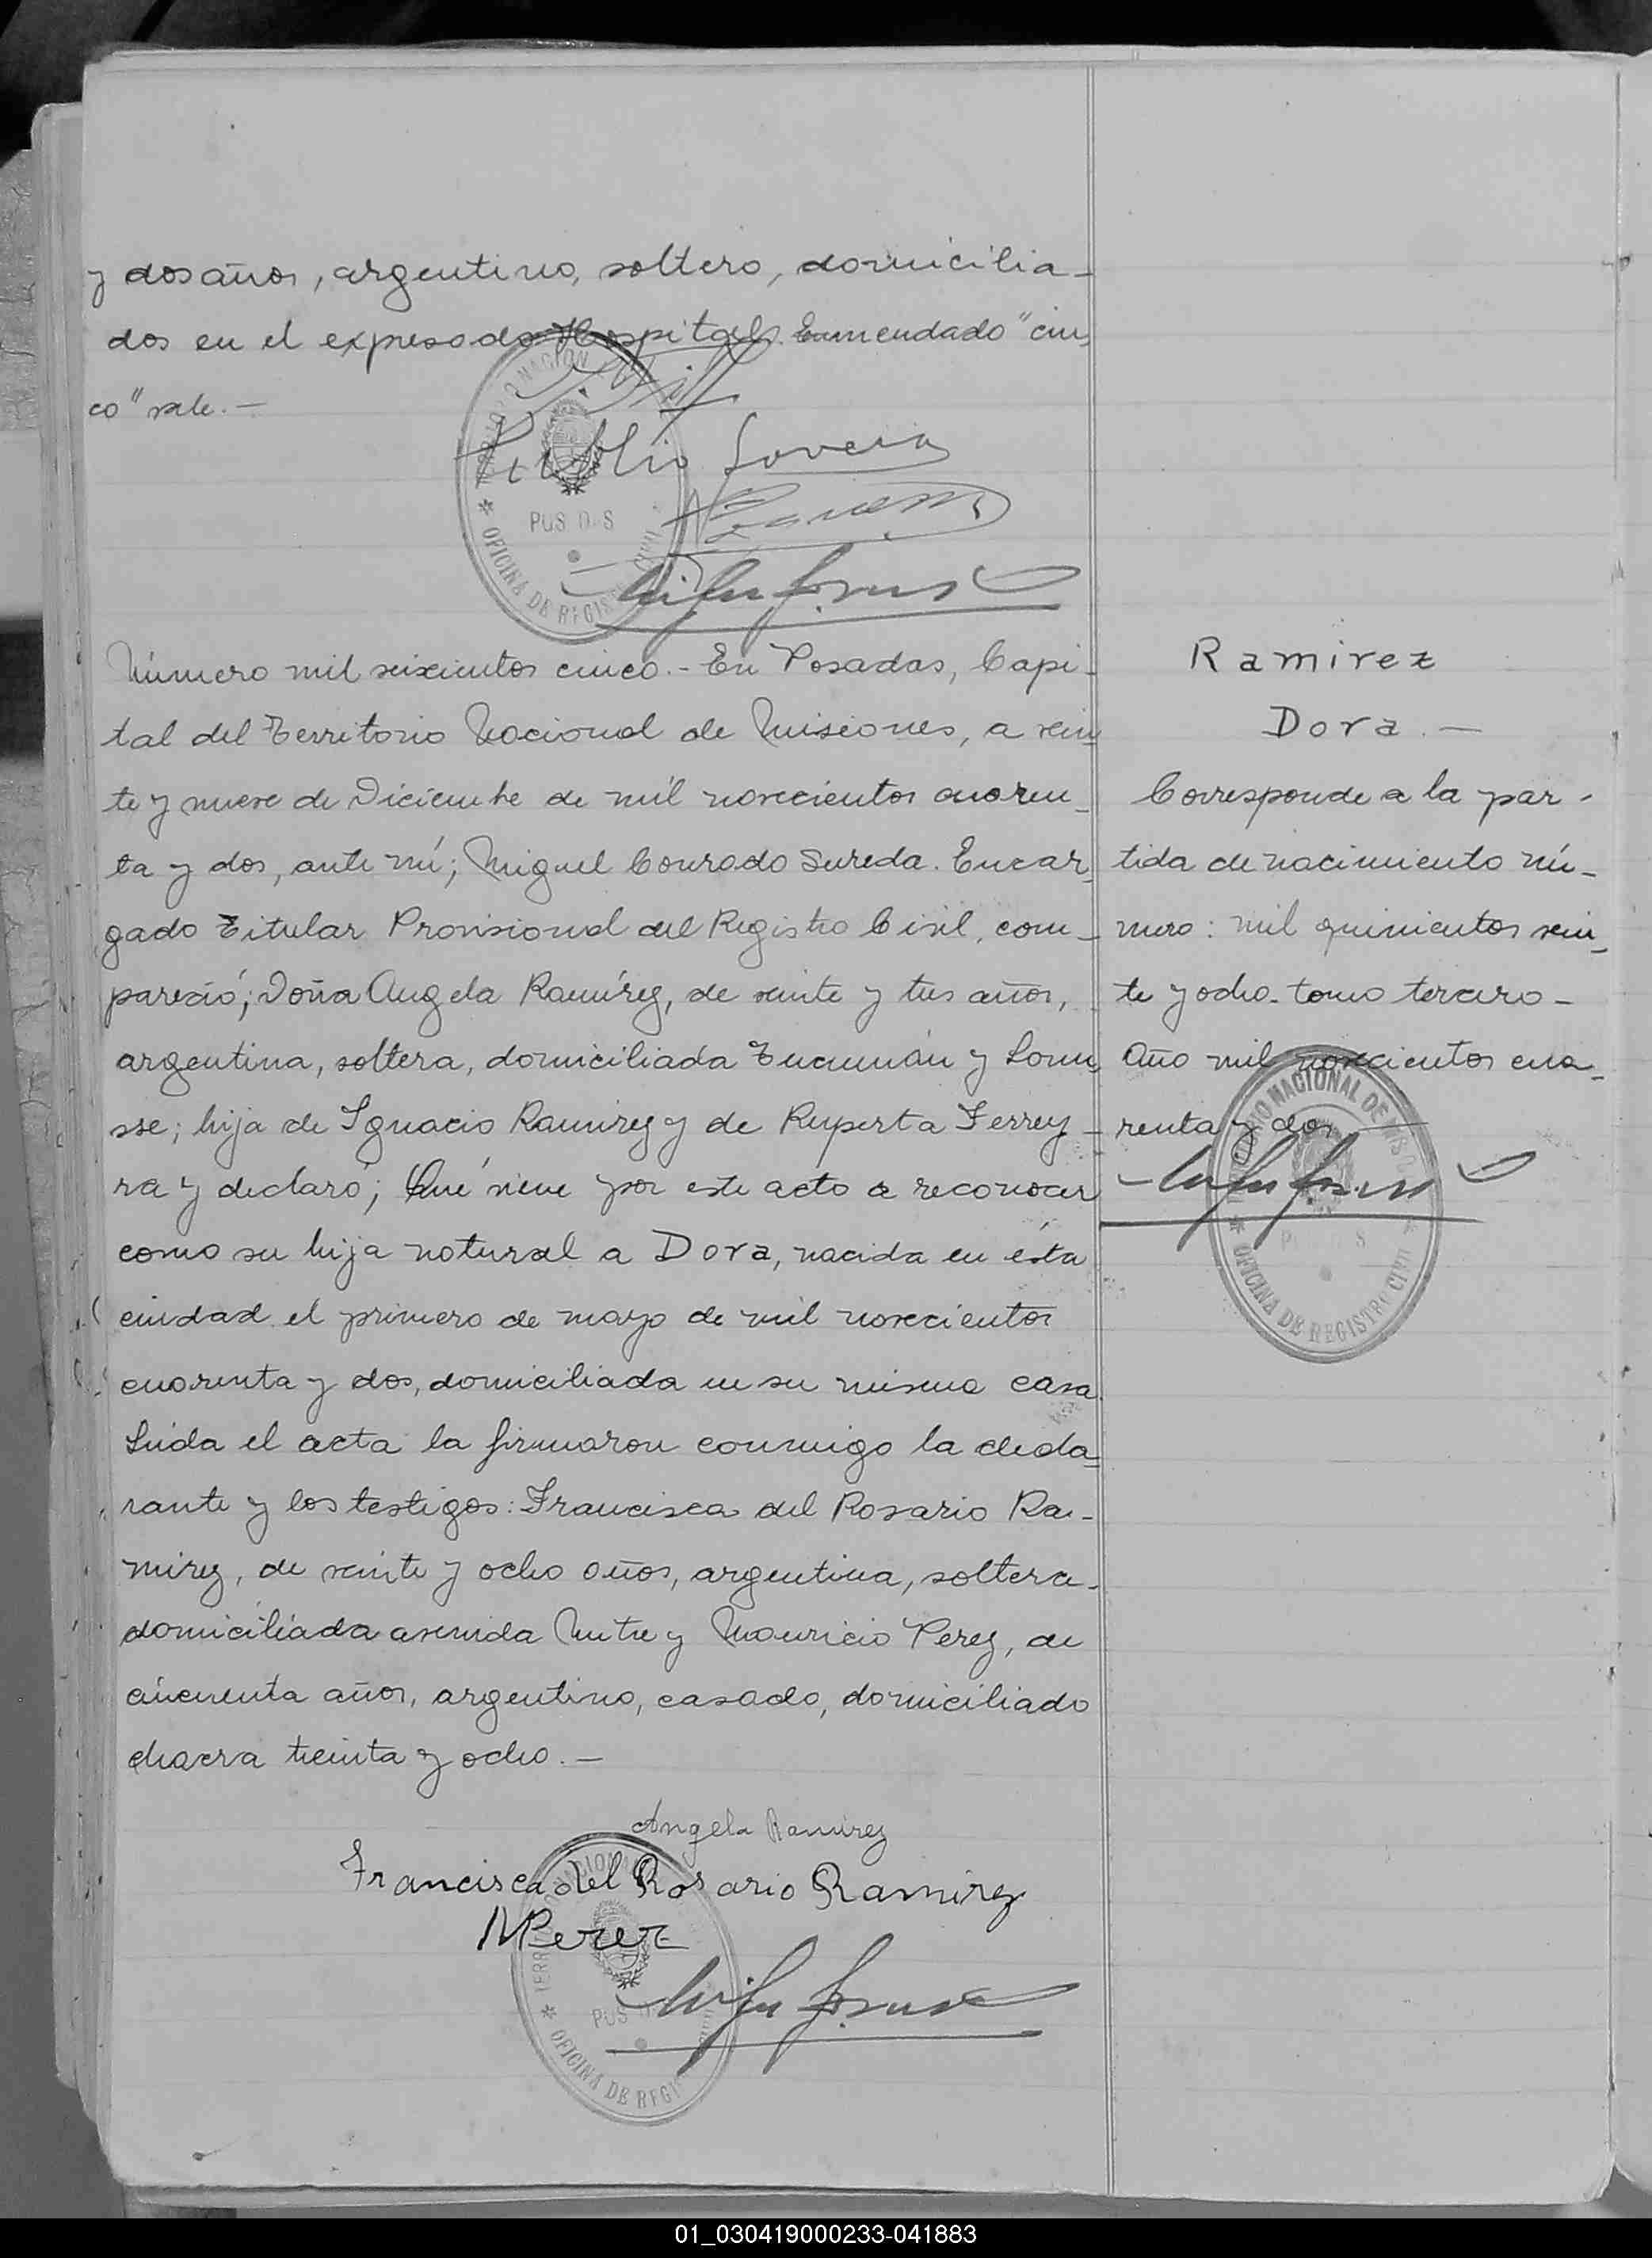 y dos años, argentino, soltero, domicilia-
dos en el expresado Hospital. Enmendado "cin-
co" vale.-
Publio Lovera
TERRITORIO NACIONAL
POSADAS
OFICINA DE REGISTRO CIVIL
Número mil seiscientos cinco.- En Posadas, Capi-
tal del Territorio Nacional de Misiones, a vein-
te y nueve de Diciembre de mil novecientos cuaren-
ta y dos, ante mí; Miguel Conrado Sureda. Encar-
gado Titular Provisional del Registro Civil, com-
pareció; Doña Angela Ramírez, de veinte y tres años,
argentina, soltera, domiciliada Tucumán y Lanu-
sse; hija de Ignacio Ramirez y de Ruperta Ferrey-
ra y declaró; Que viene por este acto a reconocer
como su hija natural a Dora, nacida en ésta
ciudad el primero de mayo de mil novecientos
cuarenta y dos, domiciliada en su misma casa.
Leída el acta la firmaron conmigo la decla-
rante y los testigos: Francisca del Rosario Ra-
mirez, de veinte y ocho años, argentina, soltera-
domiciliada avenida Mitre y Mauricio Perez, de
cincuenta años, argentino, casado, domiciliado
chacra treinta y ocho.-
Angela Ramirez
Francisca del Rosario Ramirez
MPerez
TERRITORIO NACIONAL
POSADAS
OFICINA DE REGISTRO CIVIL
Ramirez
Dora.-
Corresponde a la par-
tida de nacimiento nú-
mero: mil quinientos vein-
te y ocho- tomo tercero-
Año mil novecientos cua-
renta y dos
TERRITORIO NACIONAL DE MISIONES
POSADAS
OFICINA DE REGISTRO CIVIL
01_030419000233-041883